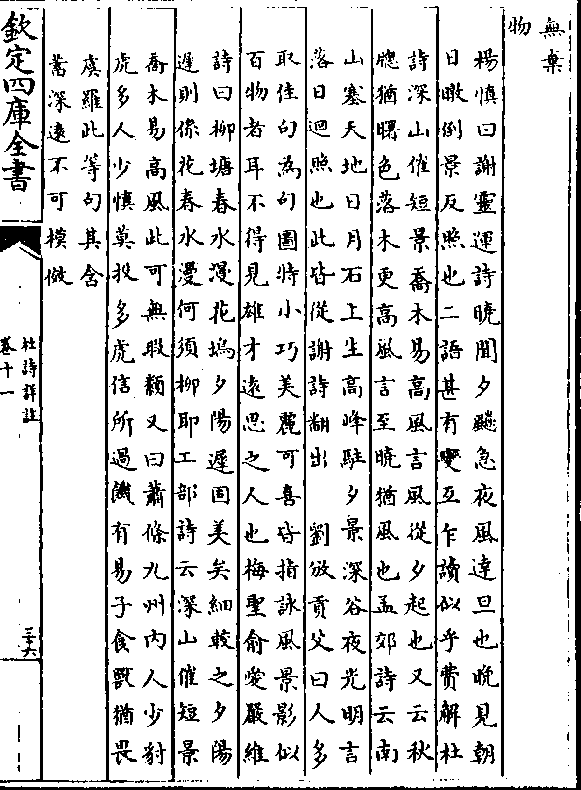 無棄
物
楊慎曰謝靈運詩曉聞夕飈急夜風達旦也晚見朝
日暾倒景反照也二語甚有變互乍讀似乎費解杜
詩深山催短景喬木易高風言風從夕起也又云秋
牕猶曙色落木更高風言至曉猶風也孟郊詩云南
山塞天地日月石上生高峰駐夕景深谷夜光明言
落日迴照也此皆從謝詩翻出 劉攽貢父曰人多
取佳句為句圖特小巧美麗可喜皆指詠風景影似
百物者耳不得見雄才遠思之人也梅聖俞愛嚴維
詩曰柳塘春水漫花塢夕陽遲固美矣細較之夕陽
遲則係花春水漫何須柳耶工部詩云深山催短景
喬木易高風此可無瑕纇又曰蕭條九州內人少豺
虎多人少慎莫投多虎信所過饑有易子食獸猶畏
虞羅此等句其含
蓄深遠不可模倣
欽定四庫全書
杜詩詳註
卷十一
三十六